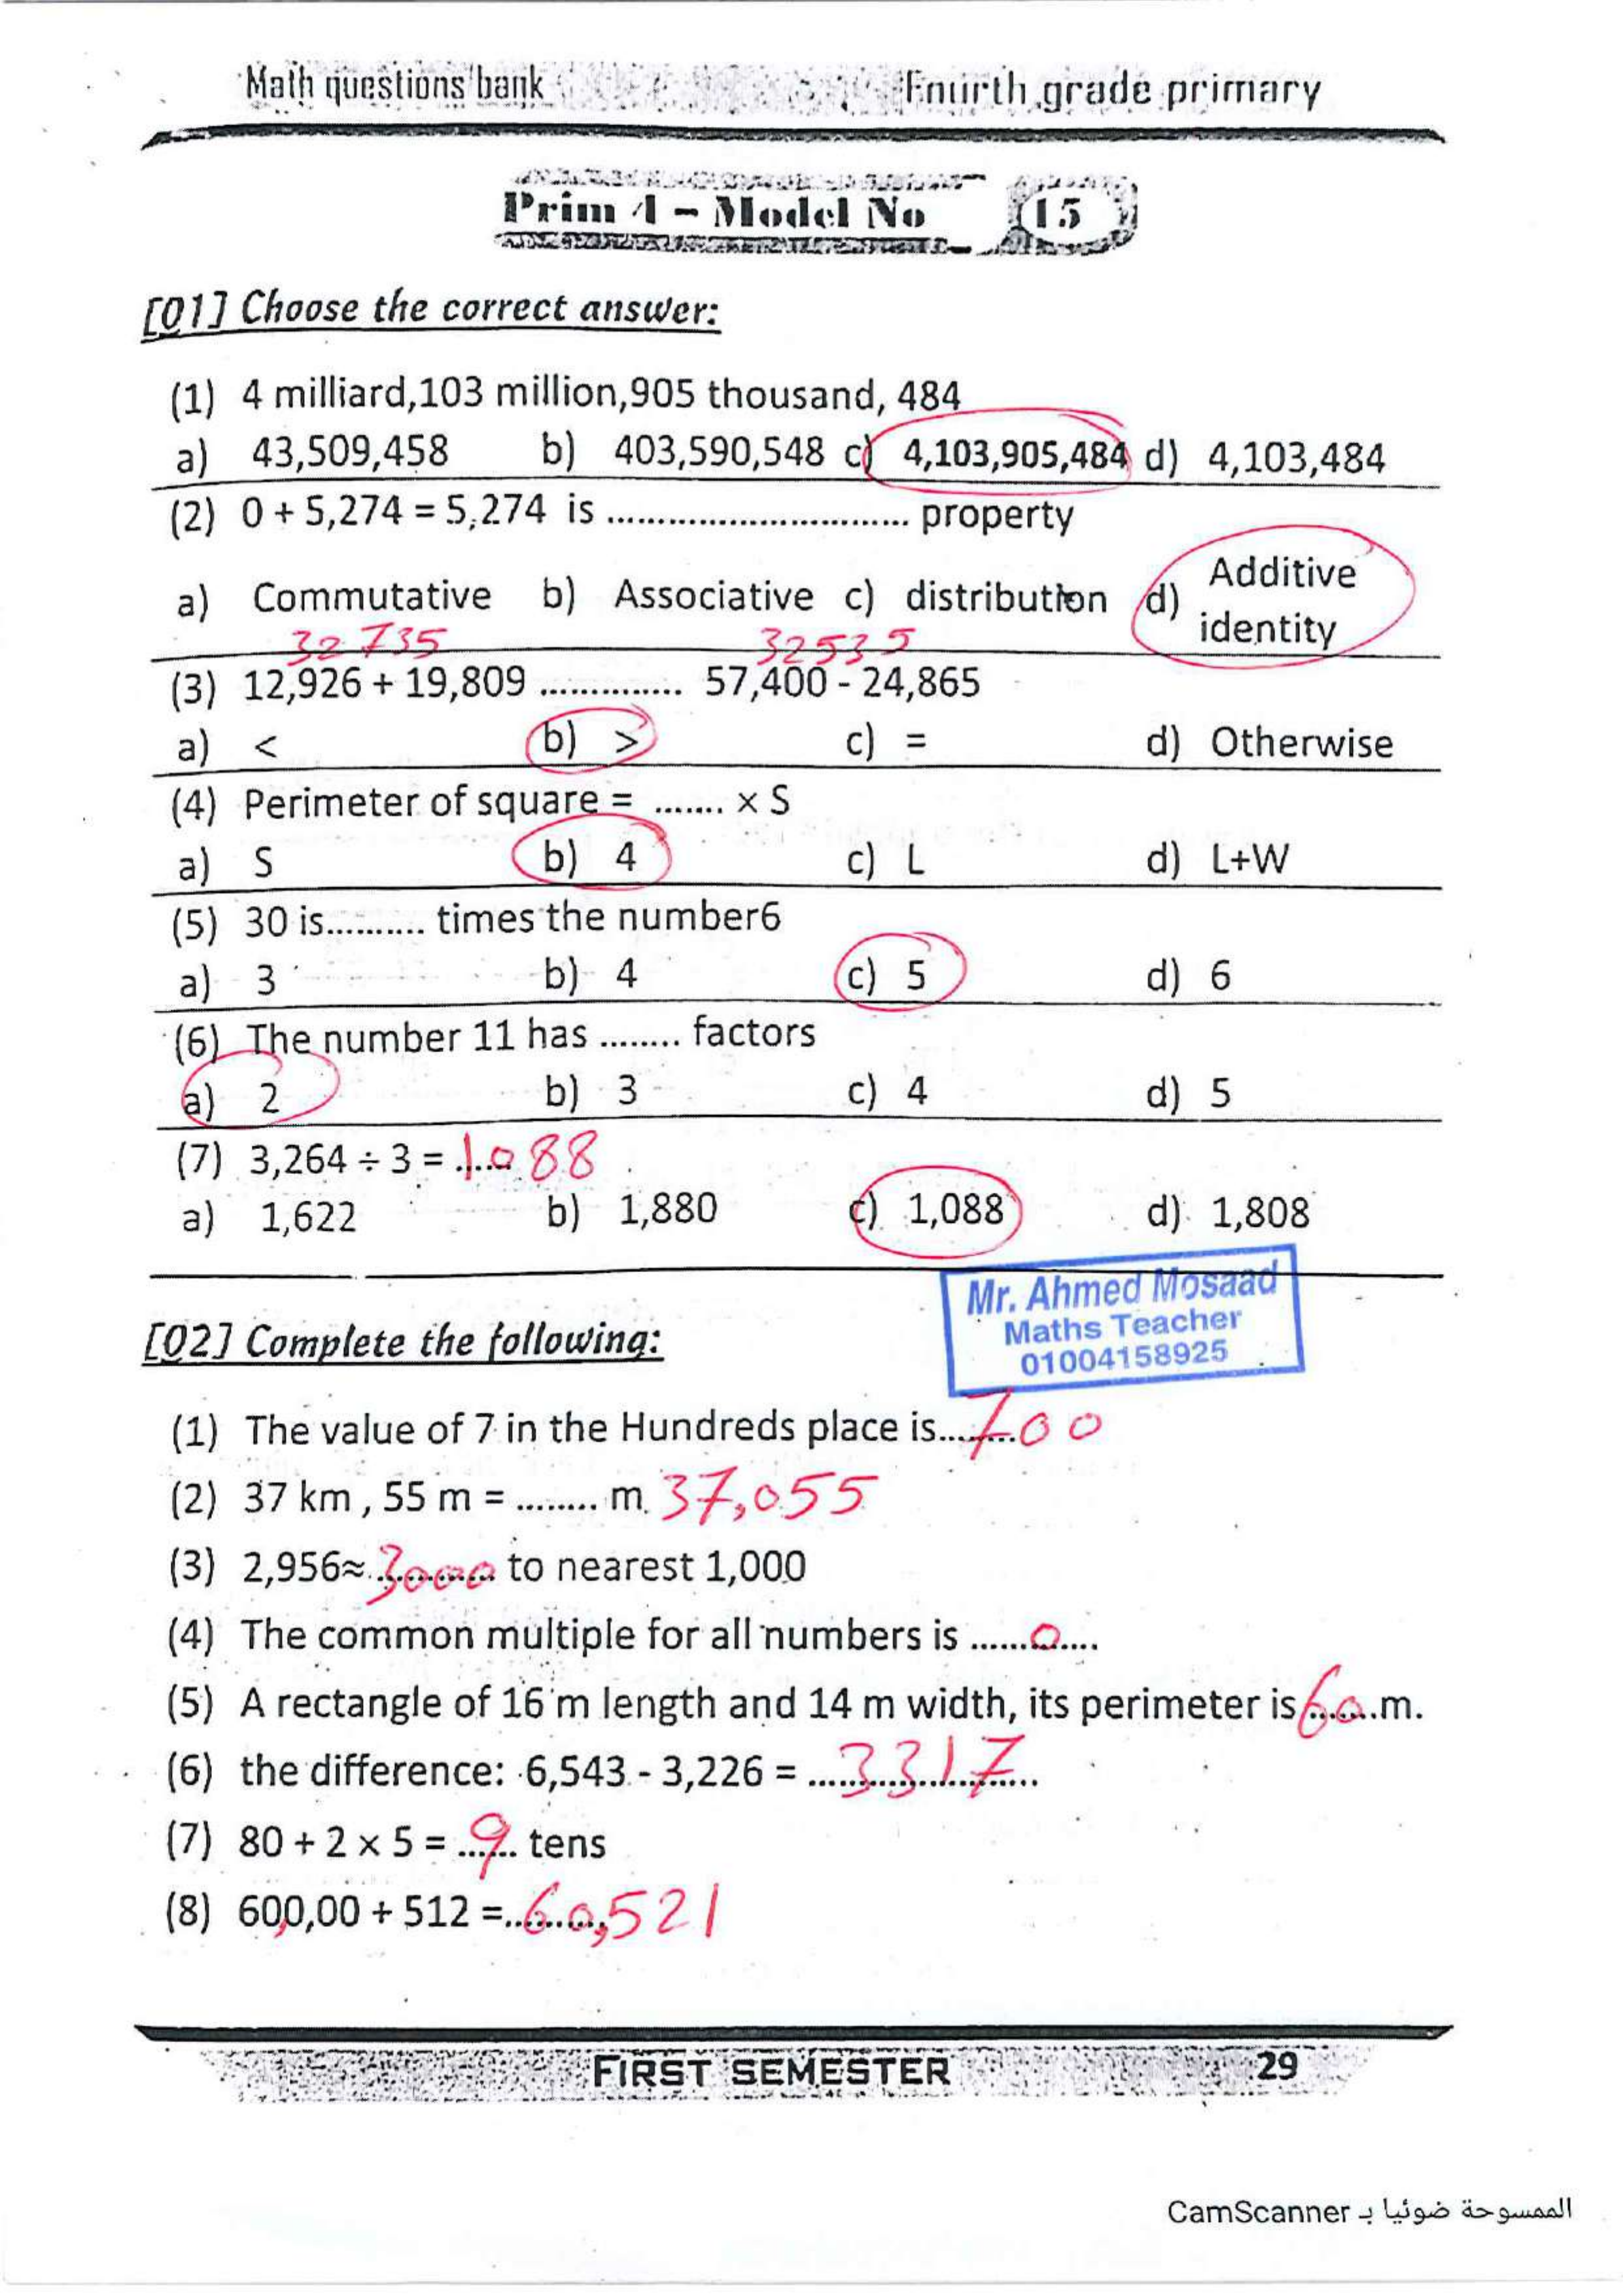 Math questions bank Fourth grade primary
Prim 4 - Model No 15
[01] Choose the correct answer:
(1) 4 milliard,103 million,905 thousand, 484
a) 43,509,458 b) 403,590,548 c) 4,103,905,484 d) 4,103,484
(2) 0 + 5,274 = 5,274 is .............................. property
a) Commutative b) Associative c) distribution d) Additive identity
32735 32535
(3) 12,926 + 19,809 .............. 57,400 - 24,865
a) < b) > c) = d) Otherwise
(4) Perimeter of square = ....... × S
a) S b) 4 c) L d) L+W
(5) 30 is.......... times the number6
a) 3 b) 4 c) 5 d) 6
(6) The number 11 has ........ factors
a) 2 b) 3 c) 4 d) 5
(7) 3,264 ÷ 3 = 1088
a) 1,622 b) 1,880 c) 1,088 d) 1,808
Mr. Ahmed Mosaad
Maths Teacher
01004158925
[02] Complete the following:
(1) The value of 7 in the Hundreds place is........700
(2) 37 km , 55 m = ........ m. 37,055
(3) 2,956≈ 3000 to nearest 1,000
(4) The common multiple for all numbers is ......0.....
(5) A rectangle of 16 m length and 14 m width, its perimeter is 60 .m.
(6) the difference: 6,543 - 3,226 = ...3317...
(7) 80 + 2 × 5 = 9 tens
(8) 600,00 + 512 =..60,521
FIRST SEMESTER 29
الممسوحة ضوئيا بـ CamScanner